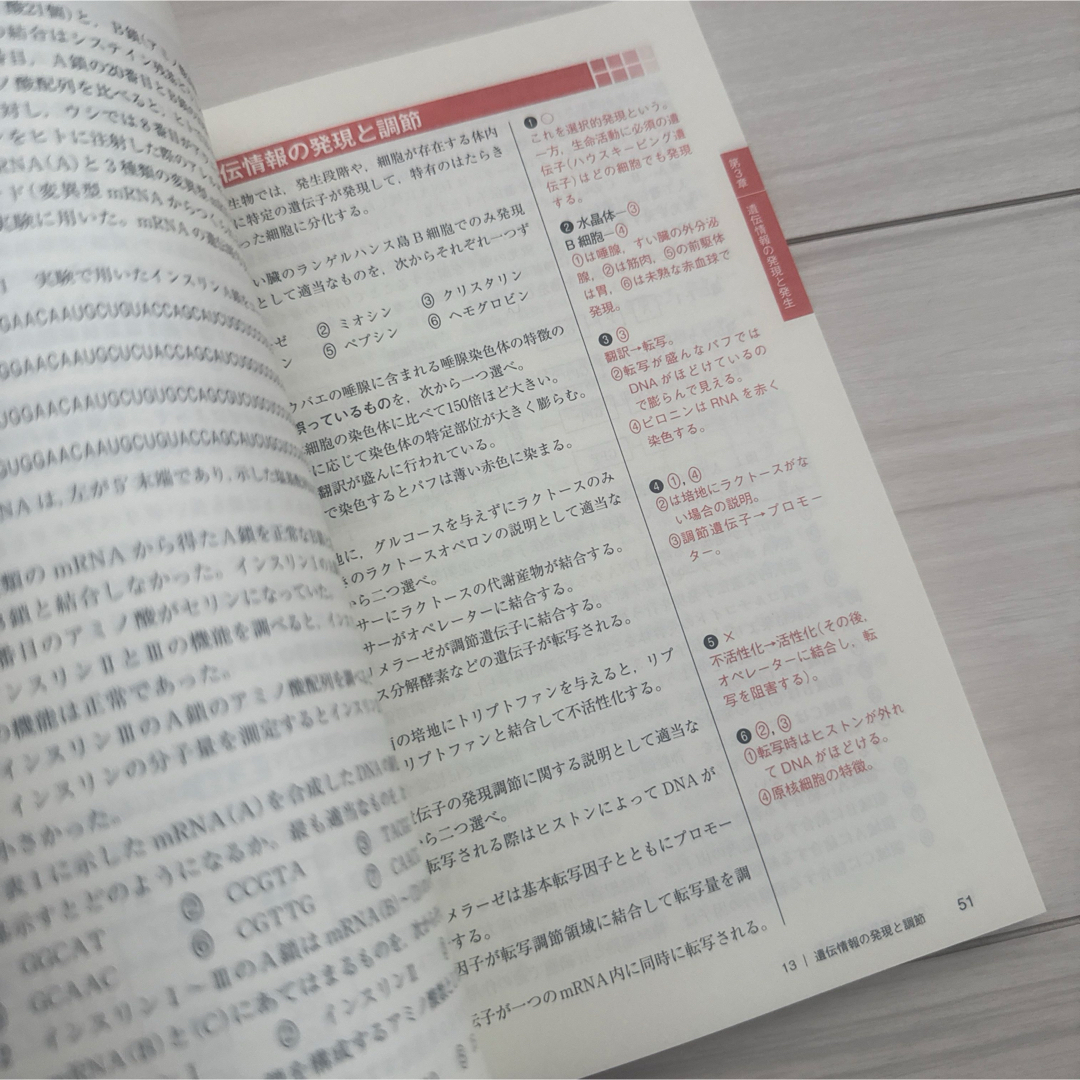 酸21個)と，B鎖(アミノ酸
の結合はシステイン
番目，A鎖の20番目とB鎖の
ノ酸配列を比べると，ヒト
対し，ウシでは8番目が
ンをヒトに注射した際の
RNA(A)と3種類の変異型
ド(変異型mRNAからつく
実験に用いた。mRNAの
実験で用いたインスリンA鎖
GAACAAUGCUGUACCAGCAUCUG
GGAACAAUGCUCUACCAGCAUCUG
UGGAACAAUGCUGUACCAGC
GUGGAACAAUGCUGUACCAGCAUCUG
NAは，左が5′末端であり，示した塩基
類のmRNAから得たA鎖を正常な
B鎖と結合しなかった。インスリンIの
番目のアミノ酸がセリンになっていた。
ンスリンⅡとⅢの機能を調べると，
の機能は正常であった。
インスリンⅢのA鎖のアミノ酸配列を調べ
インスリンの分子量を測定するとインスリン
小さかった。
表1に示したmRNA(A)を合成したDNAの
示すとどのようになるか，最も適当なものを
GGCAT
CCGTA
GCAAC
⑥ CGTTG
インスリンI～ⅢのA鎖はmRNA(B)～
RNA(B)と(C)にあてはまるものを，次から
インスリンI
を構成するアミノ酸
伝情報の発現と調節
生物では，発生段階や，細胞が存在する体内
に特定の遺伝子が発現して，特有のはたらき
った細胞に分化する。
い臓のランゲルハンス島B細胞でのみ発現
として適当なものを，次からそれぞれ一つず
ゼ ② ミオシン ③ クリスタリン
ン ⑤ ペプシン ⑥ ヘモグロビン
クバエの唾腺に含まれる唾腺染色体の特徴の
誤っているものを，次から一つ選べ。
細胞の染色体に比べて150倍ほど大きい。
に応じて染色体の特定部位が大きく膨らむ。
翻訳が盛んに行われている。
で染色するとパフは薄い赤色に染まる。
地に，グルコースを与えずにラクトースのみ
きのラクトースオペロンの説明として適当な
ら二つ選べ。
サーにラクトースの代謝産物が結合する。
サーがオペレーターに結合する。
リメラーゼが調節遺伝子に結合する。
ス分解酵素などの遺伝子が転写される。
の培地にトリプトファンを与えると，リプ
リプトファンと結合して不活性化する。
伝子の発現調節に関する説明として適当な
ら二つ選べ。
転写される際はヒストンによってDNAが
メラーゼは基本転写因子とともにプロモー
する。
因子が転写調節領域に結合して転写量を調
伝子が一つのmRNA内に同時に転写される。
❶ ○
これを選択的発現という。
一方，生命活動に必須の遺
伝子(ハウスキーピング遺
伝子)はどの細胞でも発現
する。
❷ 水晶体―③
B細胞―④
①は唾腺，すい臓の外分泌
腺，②は筋肉，⑤の前駆体
は胃，⑥は未熟な赤血球で
発現。
❸ ③
翻訳→転写。
②転写が盛んなパフでは
DNAがほどけているの
で膨らんで見える。
④ピロニンはRNAを赤く
染色する。
❹ ①，④
②は培地にラクトースがな
い場合の説明。
③調節遺伝子→プロモー
ター。
❺ ×
不活性化→活性化(その後，
オペレーターに結合し，転
写を阻害する)。
❻ ②，③
①転写時はヒストンが外れ
てDNAがほどける。
④原核細胞の特徴。
第3章
遺伝情報の発現と発生
13 | 遺伝情報の発現と調節 51